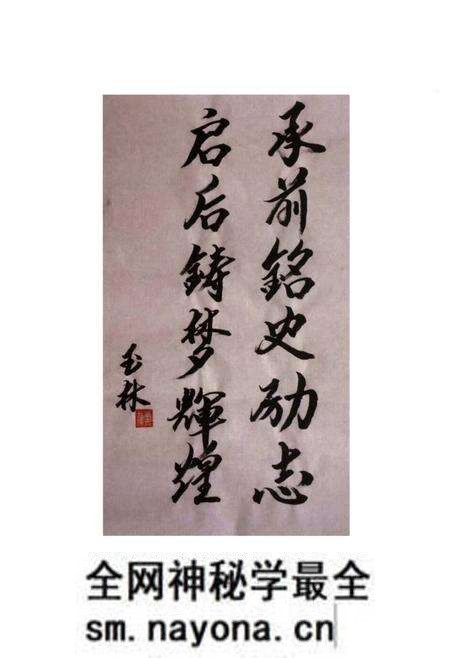 承前銘史励志
启后鋳梦輝煌
玉林
全网神秘学最全
sm.nayona.cn